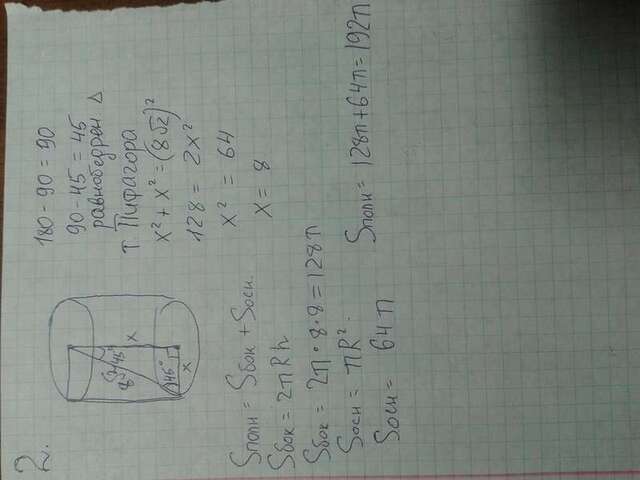 2.
180 - 90 = 90
90 - 45 = 45
равнобедрен △
т Пифагора
x² + x² = (8√2)²
128 = 2x²
x² = 64
x = 8
8√2
45°
x
45°
x
Sполн = Sбок + Sосн.
Sбок = 2πRh
Sбок = 2π · 8 · 8 = 128π
Sосн = πR².
Sосн = 64π
Sполн = 128π + 64π = 192π